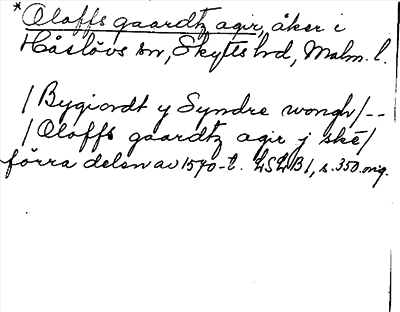 *Oloffs gaardtz agir, åker i
Håslövs sn, Skytts hd, Malm. l.
/Bygiordt y Syndre wongh/--
/Oloffs gaardtz agir j skê/
förra delen av 1570-t. LSLB1, s. 350. orig.